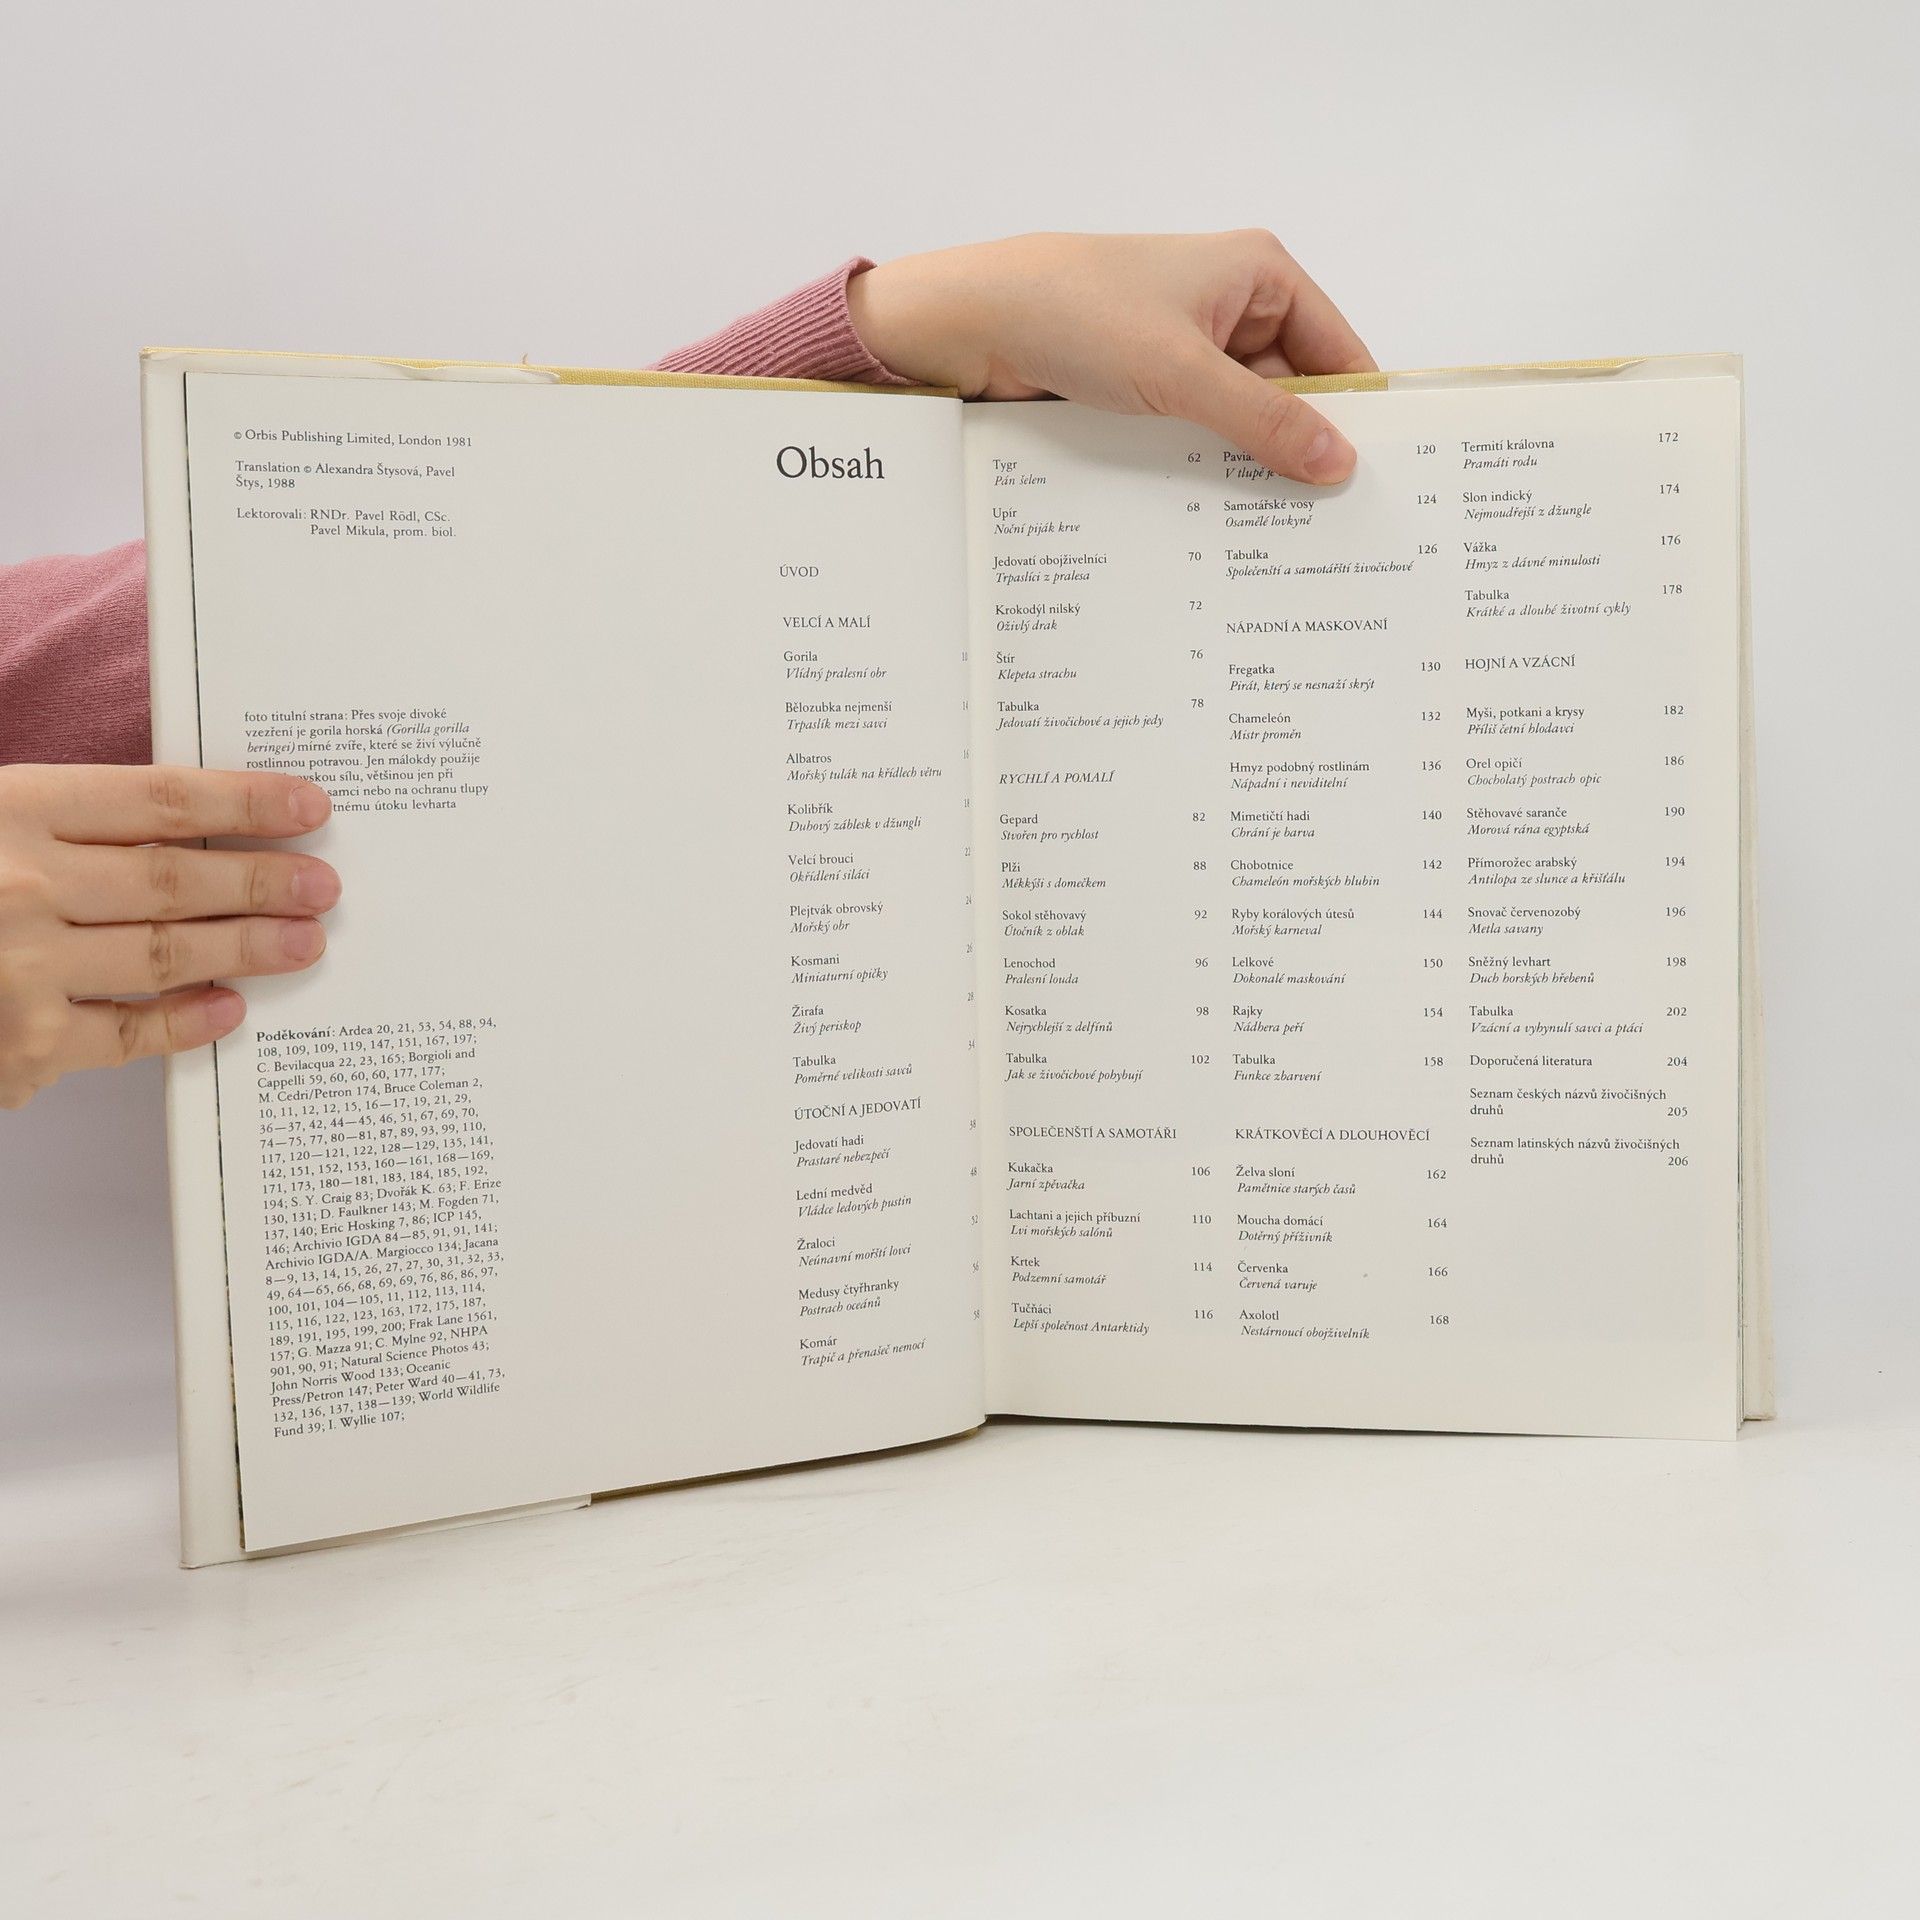 © Orbis Publishing Limited, London 1981
Translation © Alexandra Štysová, Pavel
Štys, 1988
Lektorovali: RNDr. Pavel Rödl, CSc.
Pavel Mikula, prom. biol.
foto titulní strana: Přes svoje divoké
vzezření je gorila horská (Gorilla gorilla
beringei) mírné zvíře, které se živí výlučně
rostlinnou potravou. Jen málokdy použije
sílu, většinou jen při
samci nebo na ochranu tlupy
útoku levharta
Poděkování: Ardea 20, 21, 53, 54, 88, 94,
108, 109, 109, 119, 147, 151, 167, 197;
C. Bevilacqua 22, 23, 165; Borgioli and
Cappelli 59, 60, 60, 60, 177, 177;
M. Cedri/Petron 174, Bruce Coleman 2,
10, 11, 12, 12, 15, 16—17, 19, 21, 29,
36—37, 42, 44—45, 46, 51, 67, 69, 70,
74—75, 77, 80—81, 87, 89, 93, 99, 110,
117, 120—121, 122, 128—129, 135, 141,
142, 151, 152, 153, 160—161, 168—169,
171, 173, 180—181, 183, 184, 185, 192,
194; S. Y. Craig 83; Dvořák K. 63; F. Erize
130, 131; D. Faulkner 143; M. Fogden 71,
137, 140; Eric Hosking 7, 86; ICP 145,
146; Archivio IGDA 84—85, 91, 91, 141;
Archivio IGDA/A. Margiocco 134; Jacana
8—9, 13, 14, 15, 26, 27, 27, 30, 31, 32, 33,
49, 64—65, 66, 68, 69, 69, 76, 86, 86, 97,
100, 101, 104—105, 11, 112, 113, 114,
115, 116, 122, 123, 163, 172, 175, 187,
189, 191, 195, 199, 200; Frak Lane 1561,
157; G. Mazza 91; C. Mylne 92, NHPA
901, 90, 91; Natural Science Photos 43;
John Norris Wood 133; Oceanic
Press/Petron 147; Peter Ward 40—41, 73,
132, 136, 137, 138—139; World Wildlife
Fund 39; I. Wyllie 107;
Obsah
ÚVOD
VELCÍ A MALÍ
Gorila 10
Vlídný pralesní obr
Bělozubka nejmenší 14
Trpaslík mezi savci
Albatros 16
Mořský tulák na křídlech větru
Kolibřík 18
Duhový záblesk v džungli
Velcí brouci 22
Okřídlení siláci
Plejtvák obrovský 24
Mořský obr
Kosmani 26
Miniaturní opičky
Žirafa 28
Živý periskop
Tabulka 34
Poměrné velikosti savců
ÚTOČNÍ A JEDOVATÍ
Jedovatí hadi 38
Prastaré nebezpečí
Lední medvěd 48
Vládce ledových pustin
Žraloci 52
Neúnavní mořští lovci
Medusy čtyřhranky 56
Postrach oceánů
Komár 58
Trapič a přenašeč nemocí
Tygr 62
Pán šelem
Upír 68
Noční piják krve
Jedovatí obojživelníci 70
Trpaslíci z pralesa
Krokodýl nilský 72
Oživlý drak
Štír 76
Klepeta strachu
Tabulka 78
Jedovatí živočichové a jejich jedy
RYCHLÍ A POMALÍ
Gepard 82
Stvořen pro rychlost
Plži 88
Měkkýši s domečkem
Sokol stěhovavý 92
Útočník z oblak
Lenochod 96
Pralesní louda
Kosatka 98
Nejrychlejší z delfínů
Tabulka 102
Jak se živočichové pohybují
SPOLEČENŠTÍ A SAMOTÁŘI
Kukačka 106
Jarní zpěvačka
Lachtani a jejich příbuzní 110
Lvi mořských salónů
Krtek 114
Podzemní samotář
Tučňáci 116
Lepší společnost Antarktidy
120
V tlupě je
Samotářské vosy 124
Osamělé lovkyně
Tabulka 126
Společenští a samotářští živočichové
NÁPADNÍ A MASKOVANÍ
Fregatka 130
Pirát, který se nesnaží skrýt
Chameleón 132
Mistr proměn
Hmyz podobný rostlinám 136
Nápadní i neviditelní
Mimetičtí hadi 140
Chrání je barva
Chobotnice 142
Chameleón mořských hlubin
Ryby korálových útesů 144
Mořský karneval
Lelkové 150
Dokonalé maskování
Rajky 154
Nádhera peří
Tabulka 158
Funkce zbarvení
KRÁTKOVĚCÍ A DLOUHOVĚCÍ
Želva sloní 162
Pamětnice starých časů
Moucha domácí 164
Dotěrný příživník
Červenka 166
Červená varuje
Axolotl 168
Nestárnoucí obojživelník
Termití královna 172
Pramáti rodu
Slon indický 174
Nejmoudřejší z džungle
Vážka 176
Hmyz z dávné minulosti
Tabulka 178
Krátké a dlouhé životní cykly
HOJNÍ A VZÁCNÍ
Myši, potkani a krysy 182
Příliš četní hlodavci
Orel opičí 186
Chocholatý postrach opic
Stěhovavé saranče 190
Morová rána egyptská
Přímorožec arabský 194
Antilopa ze slunce a křišťálu
Snovač červenozobý 196
Metla savany
Sněžný levhart 198
Duch horských hřebenů
Tabulka 202
Vzácní a vyhynulí savci a ptáci
Doporučená literatura 204
Seznam českých názvů živočišných
druhů 205
Seznam latinských názvů živočišných
druhů 206